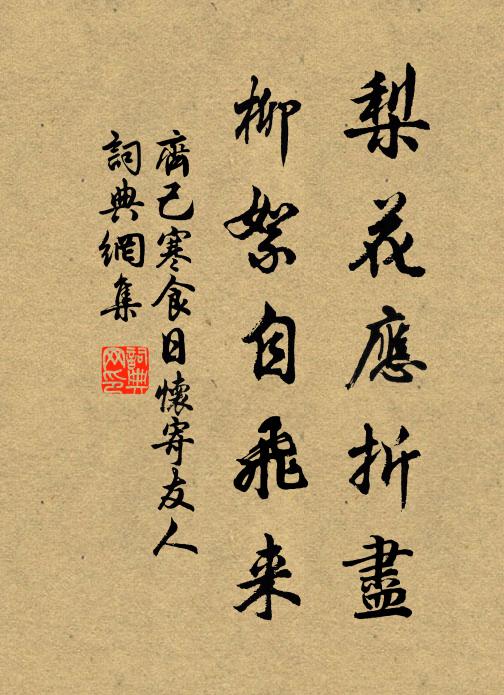 梨花應折盡
柳絮自飛来
齊己寒食日懷寄友人
詞典網集
詞典网印